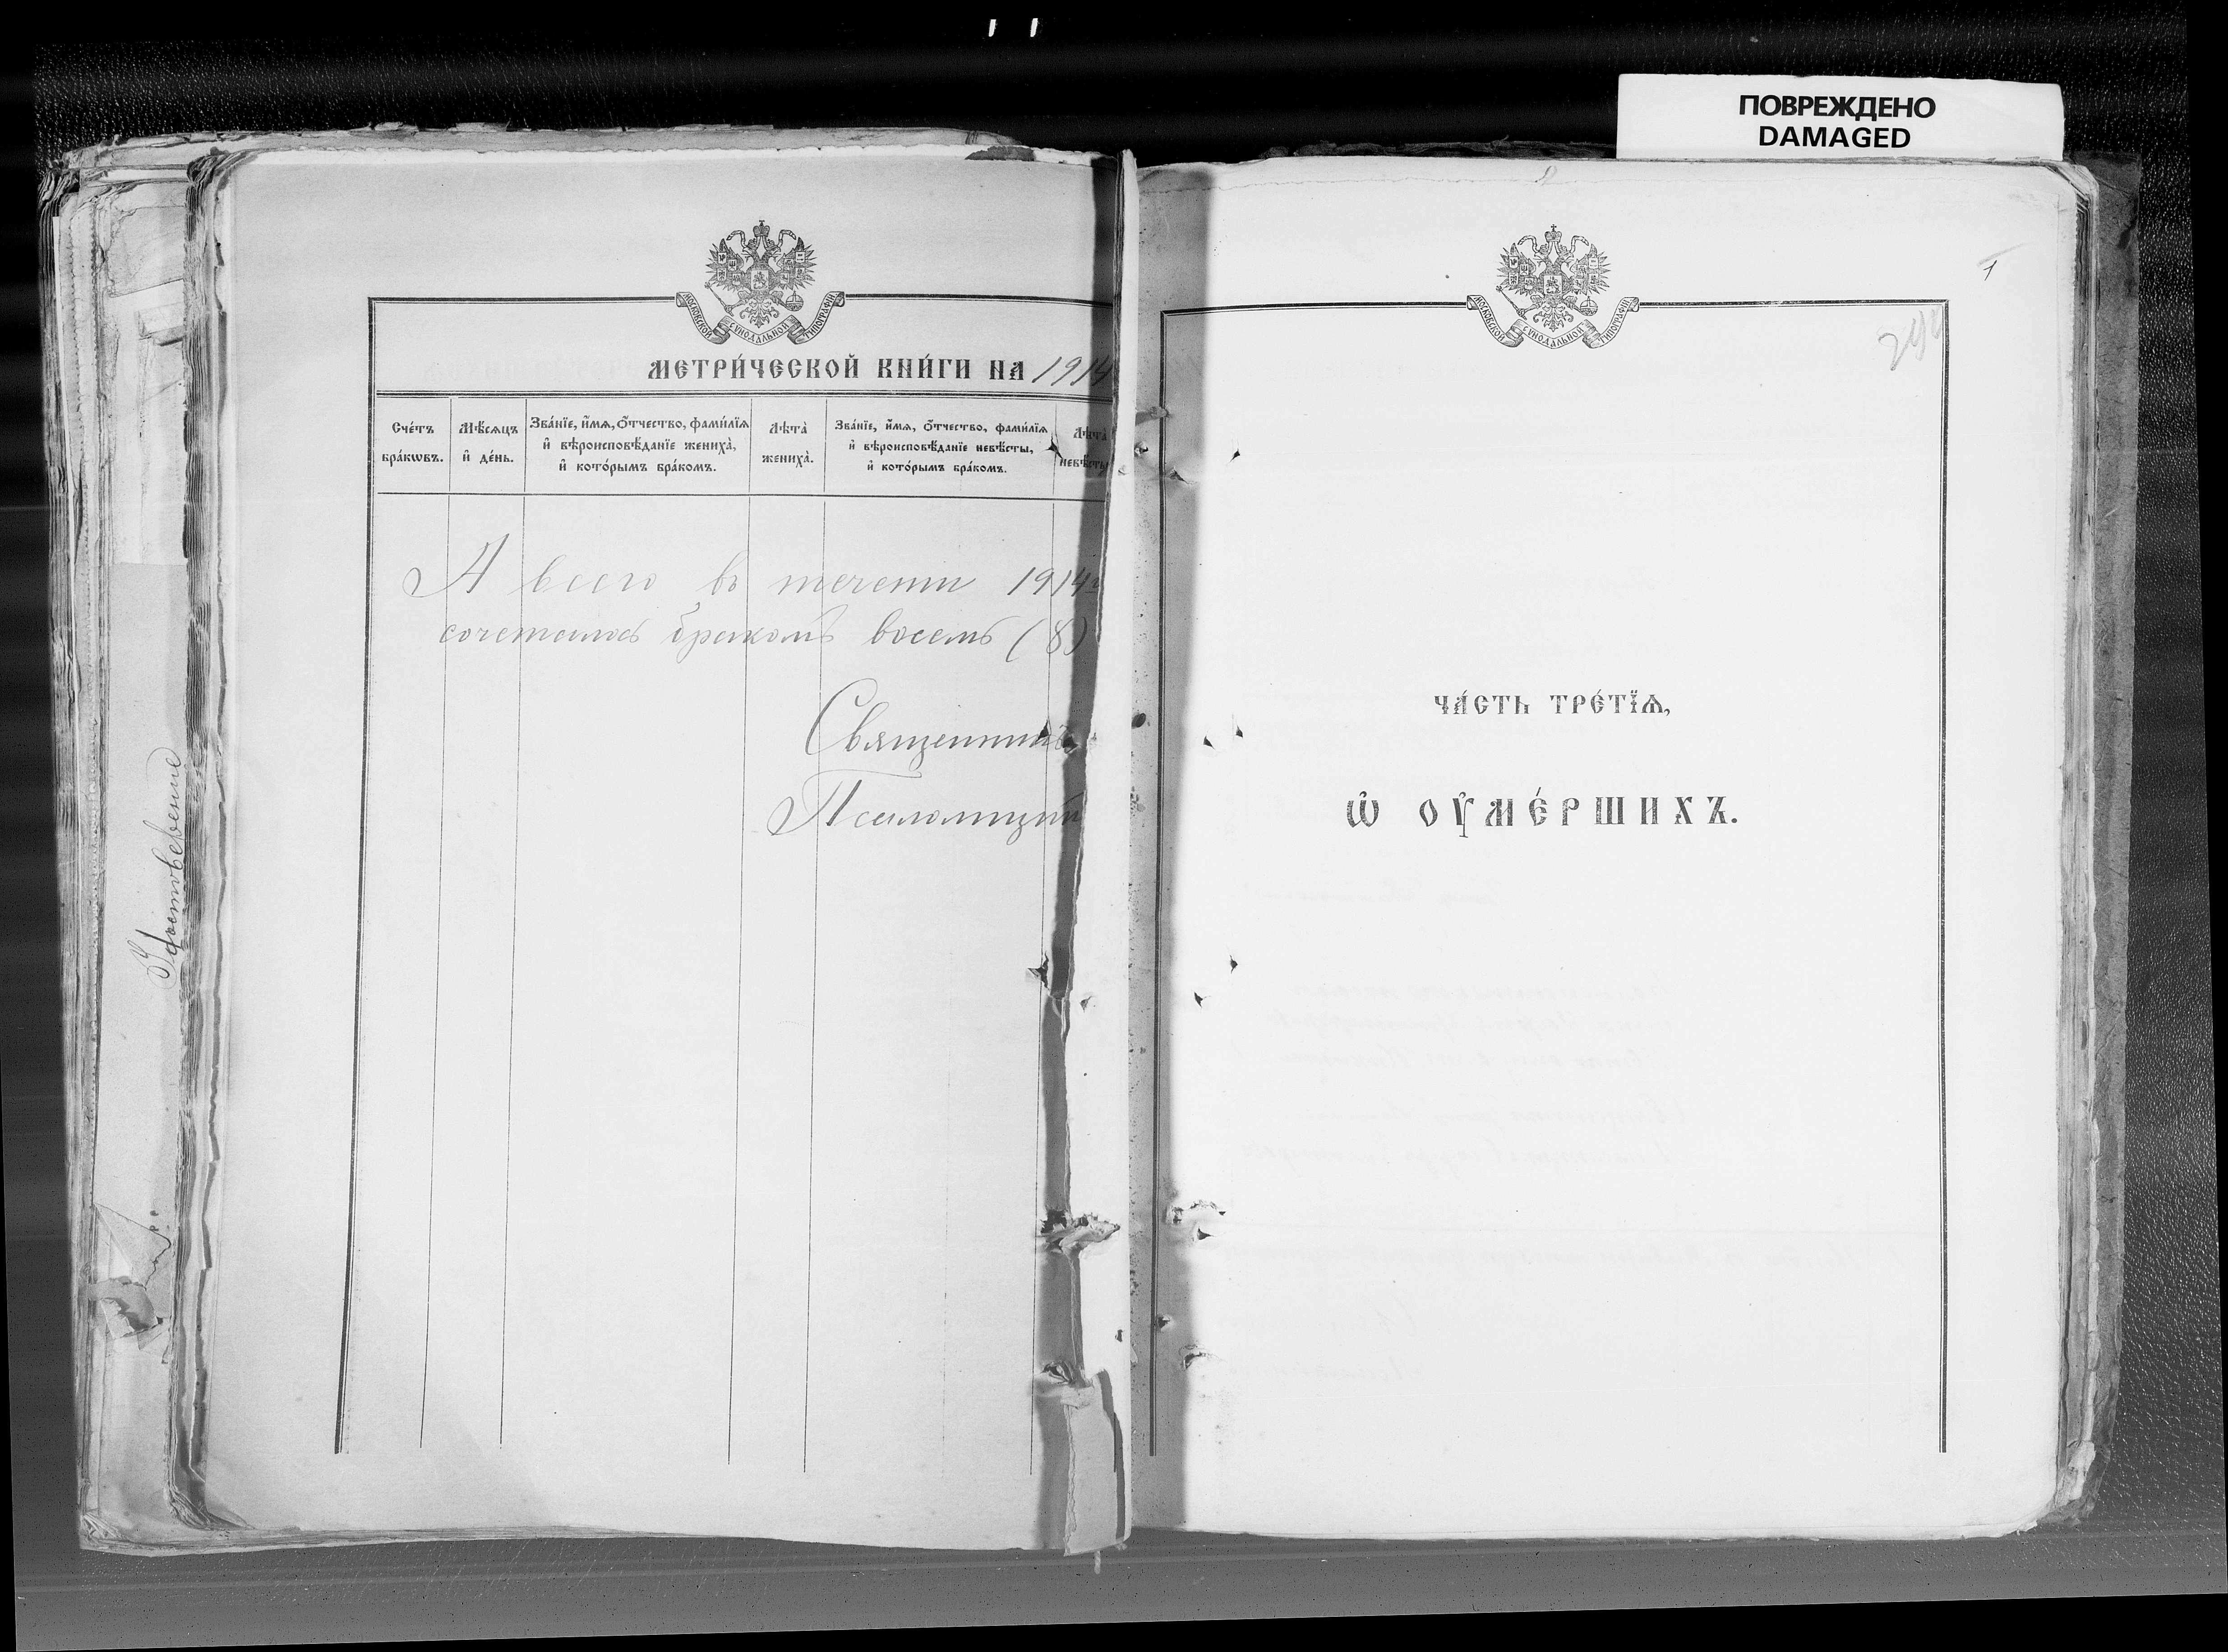 ПОВРЕЖДЕНО
DAMAGED
МОСКОВСКОЙ СѴНОДАЛЬНОЙ ТИПОГРАФІИ
МЕТРИ́ЧЕСКОЙ КНИ́ГИ НА 1914
Сче́тъ бра́кѡвъ.
Мѣ́сяцъ и҆ де́нь.
Зва́нїе, и҆́мѧ, ѻ҆́тчество, фами́лїѧ
и҆ вѣроисповѣ́данїе жениха̀,
и҆ кото́рымъ бра́комъ.
Лѣта̀ жениха̀.
Зва́нїе, и҆́мѧ, ѻ҆́тчество, фами́лїѧ
и҆ вѣроисповѣ́данїе невѣ́сты,
и҆ кото́рымъ бра́комъ.
Лѣта̀ невѣ́сты
А всего въ течении 1914 г
сочеталось бракомъ восемь (8)
Священникъ
МОСКОВСКОЙ СѴНОДАЛЬНОЙ ТИПОГРАФІИ
1
ЧА́СТЬ ТРЕ́ТЇѦ,
Ѡ҆ ОУ҆МЕ́РШИХЪ.